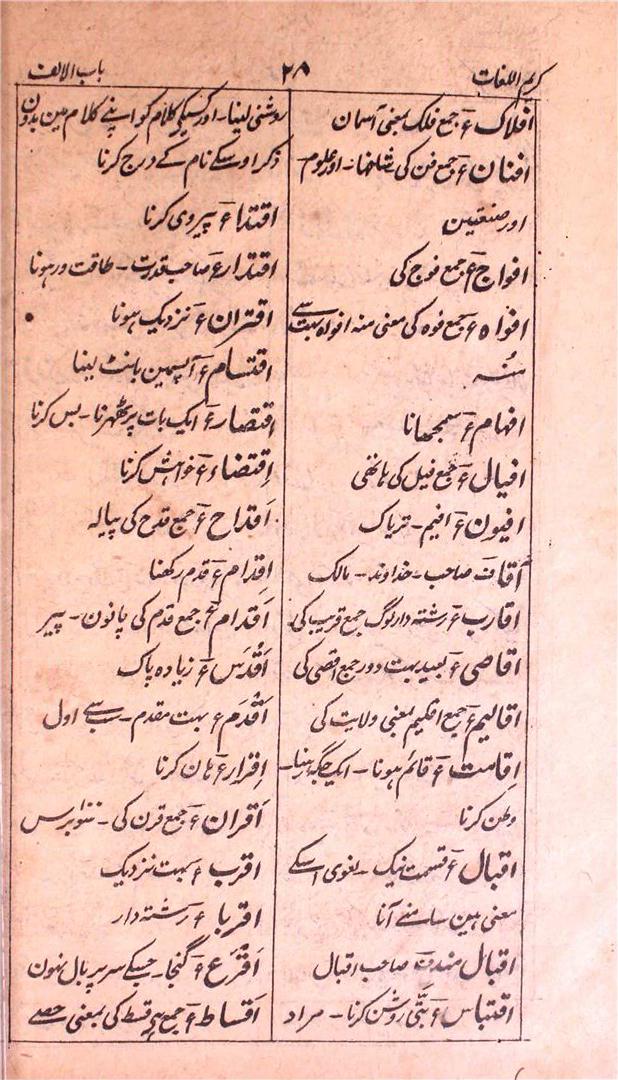 کریم اللغات
۲۸
باب الالف
افلاک ؏ جمع فلک بمعنی آسمان
افنان ؏ جمع فن کی شاخہا۔ اور علوم
اور صنعتین
افواج ؏ جمع فوج کی
افواہ ؏ جمع فوہ کی معنی منہ افواہ بہت سے
منہ
افہام ؏ سمجھانا
افیال ؏ جمع فیل کی ہاتھی
افیون ؏ افیم۔ تریاک
آقا ت صاحب۔ خداوند۔ مالک
اقارب ؏ رشتہ دار لوگ جمع قریب کی
اقاصی ؏ بعید بہت دور جمع اقصی کی
اقالیم ؏ جمع اقلیم بمعنی ولایت کی
اِقامت ؏ قائم ہونا۔ ایک جگہ رہنا۔
وطن کرنا
اقبال ؏ قسمت نیک۔ لغوی اسکے
معنی ہین سامنے آنا
اقبال مند ف صاحب اقبال
اقتباس ؏ بتّی روشن کرنا۔ مراد
روشنی لینا۔ اور کسیکے کلام کو اپنے کلام مین بدون
ذکر اوسکے نام کے درج کرنا
اقتدا ؏ پیروی کرنا
اقتدار ؏ صاحب قدرت۔ طاقت ور ہونا
اقتران ؏ نزدیک ہونا
اقتسام ؏ آپسمین بانٹ لینا
اقتصار ؏ ایک بات پر ٹھہرنا۔ بس کرنا
اِقتضاء ؏ خواہش کرنا
اَقداح ؏ جمع قدح کی پیالہ
اِقدام ؏ قدم رکھنا
اَقدام ؏ جمع قدم کی پانون۔ پیر
اَقدَس ؏ زیادہ پاک
اَقدَم ؏ بہت مقدم۔ سب سے اول
اِقرار ؏ ہان کرنا
اَقران ؏ جمع قرن کی۔ سَو برس
اقرب ؏ بہت نزدیک
اقربا ؏ رشتہ دار
اَقرَع ؏ گنجا۔ جسکے سر پر بال نہون
اَقساط ؏ جمع ہے قسط کی بمعنی حصے